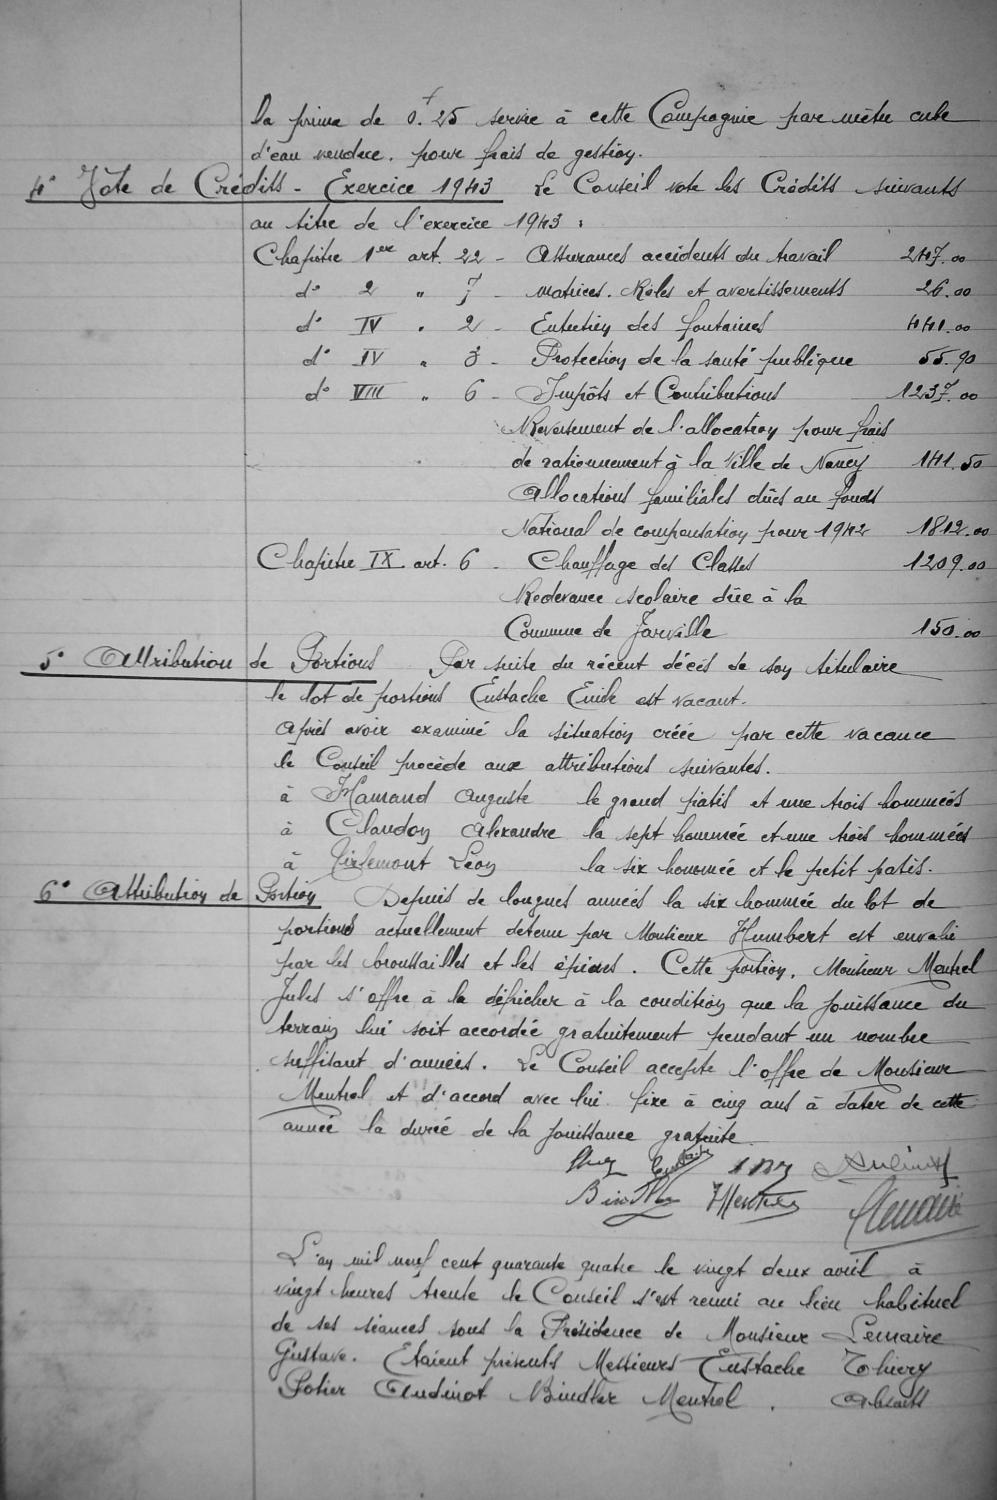 la prime de 0.f25 servie à cette Compagnie par mètre cube
d'eau vendue. pour frais de gestion.
4° Vote de Crédits - Exercice 1943 Le Conseil vote les Crédits suivants
au titre de l'exercice 1943 :
Chapitre 1er art. 22 - Assurances accidents du travail 247.00
d° 2 " 7 - Matrices. Rôles et avertissements 26.00
d° IV " 2 - Entretien des fontaines 441.00
d° IV " 3 - Protection de la santé publique 55.90
d° VIII " 6 - Impôts et Contributions 1237.00
Reversement de l'allocation pour frais
de rationnement à la Ville de Nancy 141.50
Allocations familiales dûes au fonds
National de compensation pour 1942 1812.00
Chapitre IX art. 6 - Chauffage des Classes 1209.00
Redevance scolaire dûe à la
Commune de Jarville 150.00
5° Attribution de Portions Par suite du récent décès de son titulaire
le lot de portions Eustache Emile est vacant.
Après avoir examiné la situation créée par cette vacance
le Conseil procède aux attributions suivantes.
à Hamand Auguste le grand patis et une trois hommées
à Claudon Alexandre la sept hommée et une trois hommées
à Tirlemont Léon la six hommée et le petit patis.
6° Attribution de Portion Depuis de longues années la six hommée du lot de
portions actuellement détenu par Monsieur Humbert est envahi
par les broussailles et les épines. Cette portion, Monsieur Mentrel
Jules s'offre à la défricher à la condition que la jouissance du
terrain lui soit accordée gratuitement pendant un nombre
suffisant d'années. Le Conseil accepte l'offre de Monsieur
Mentrel et d'accord avec lui fixe à cinq ans à dater de cette
année la durée de la jouissance gratuite
Eustache
JMentrel
L'an mil neuf cent quarante quatre le vingt deux avril à
vingt heures trente le Conseil s'est réuni au lieu habituel
de ses séances sous la Présidence de Monsieur Lemaire
Gustave. Etaient présents Messieurs Eustache Thiery
Potier Audinot Bindler Mentrel . Absents